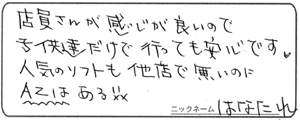 店員さんが感じが良いので
子供達だけで行っても安心です。
人気のソフトも他店で悪いのに
AZはある!!
ニックネーム はなたれ